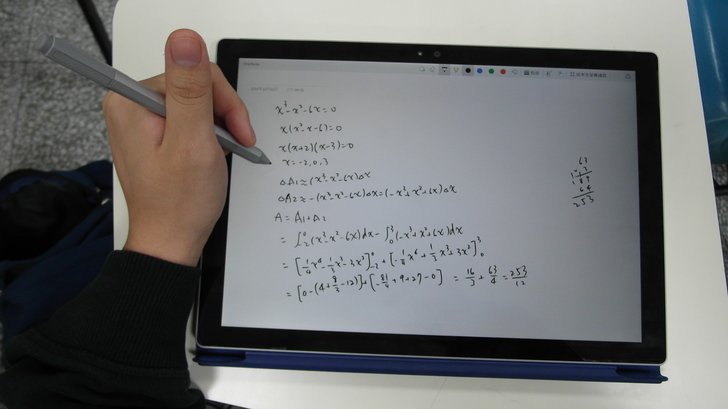 x³-x²-6x=0
x(x²-x-6)=0
x(x+2)(x-3)=0
x=-2,0,3
△A₁≈(x³-x²-6x)△x
△A₂≈-(x³-x²-6x)△x=(-x³+x²+6x)△x
A=A₁+A₂
=∫₋₂⁰(x³-x²-6x)dx-∫₀³(-x³+x²+6x)dx
=[1/4x⁴-1/3x³-3x²]₋₂⁰+[-1/4x⁴+1/3x³+3x²]₀³
=[0-(4+8/3-12)]+[-81/4+9+27-0] =16/3+63/4=253/12
63
189
64
253